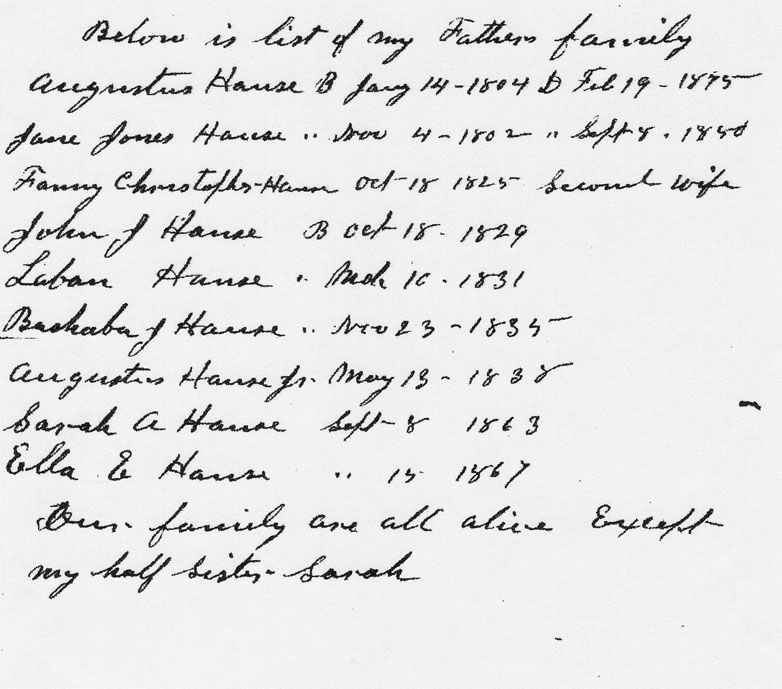 Below is list of my Fathers family
Augustus Hause B Jany 14-1804 D Feb 19-1875
Jane Jones Hause " Nov 4-1802 " Sept 8.
Fanny Christopher-Hause Oct-18 1825 Second wife
John J Hause B Oct-18-1829
Laban Hause " Mch 10-1831
J Hause " Nov 23-1835
Augustus Hause Jr. May 13-1838
Sarah A Hause Sept-8 1863
Ella E Hause " 15 1867
Our family are all alive Except
my half Sister Sarah